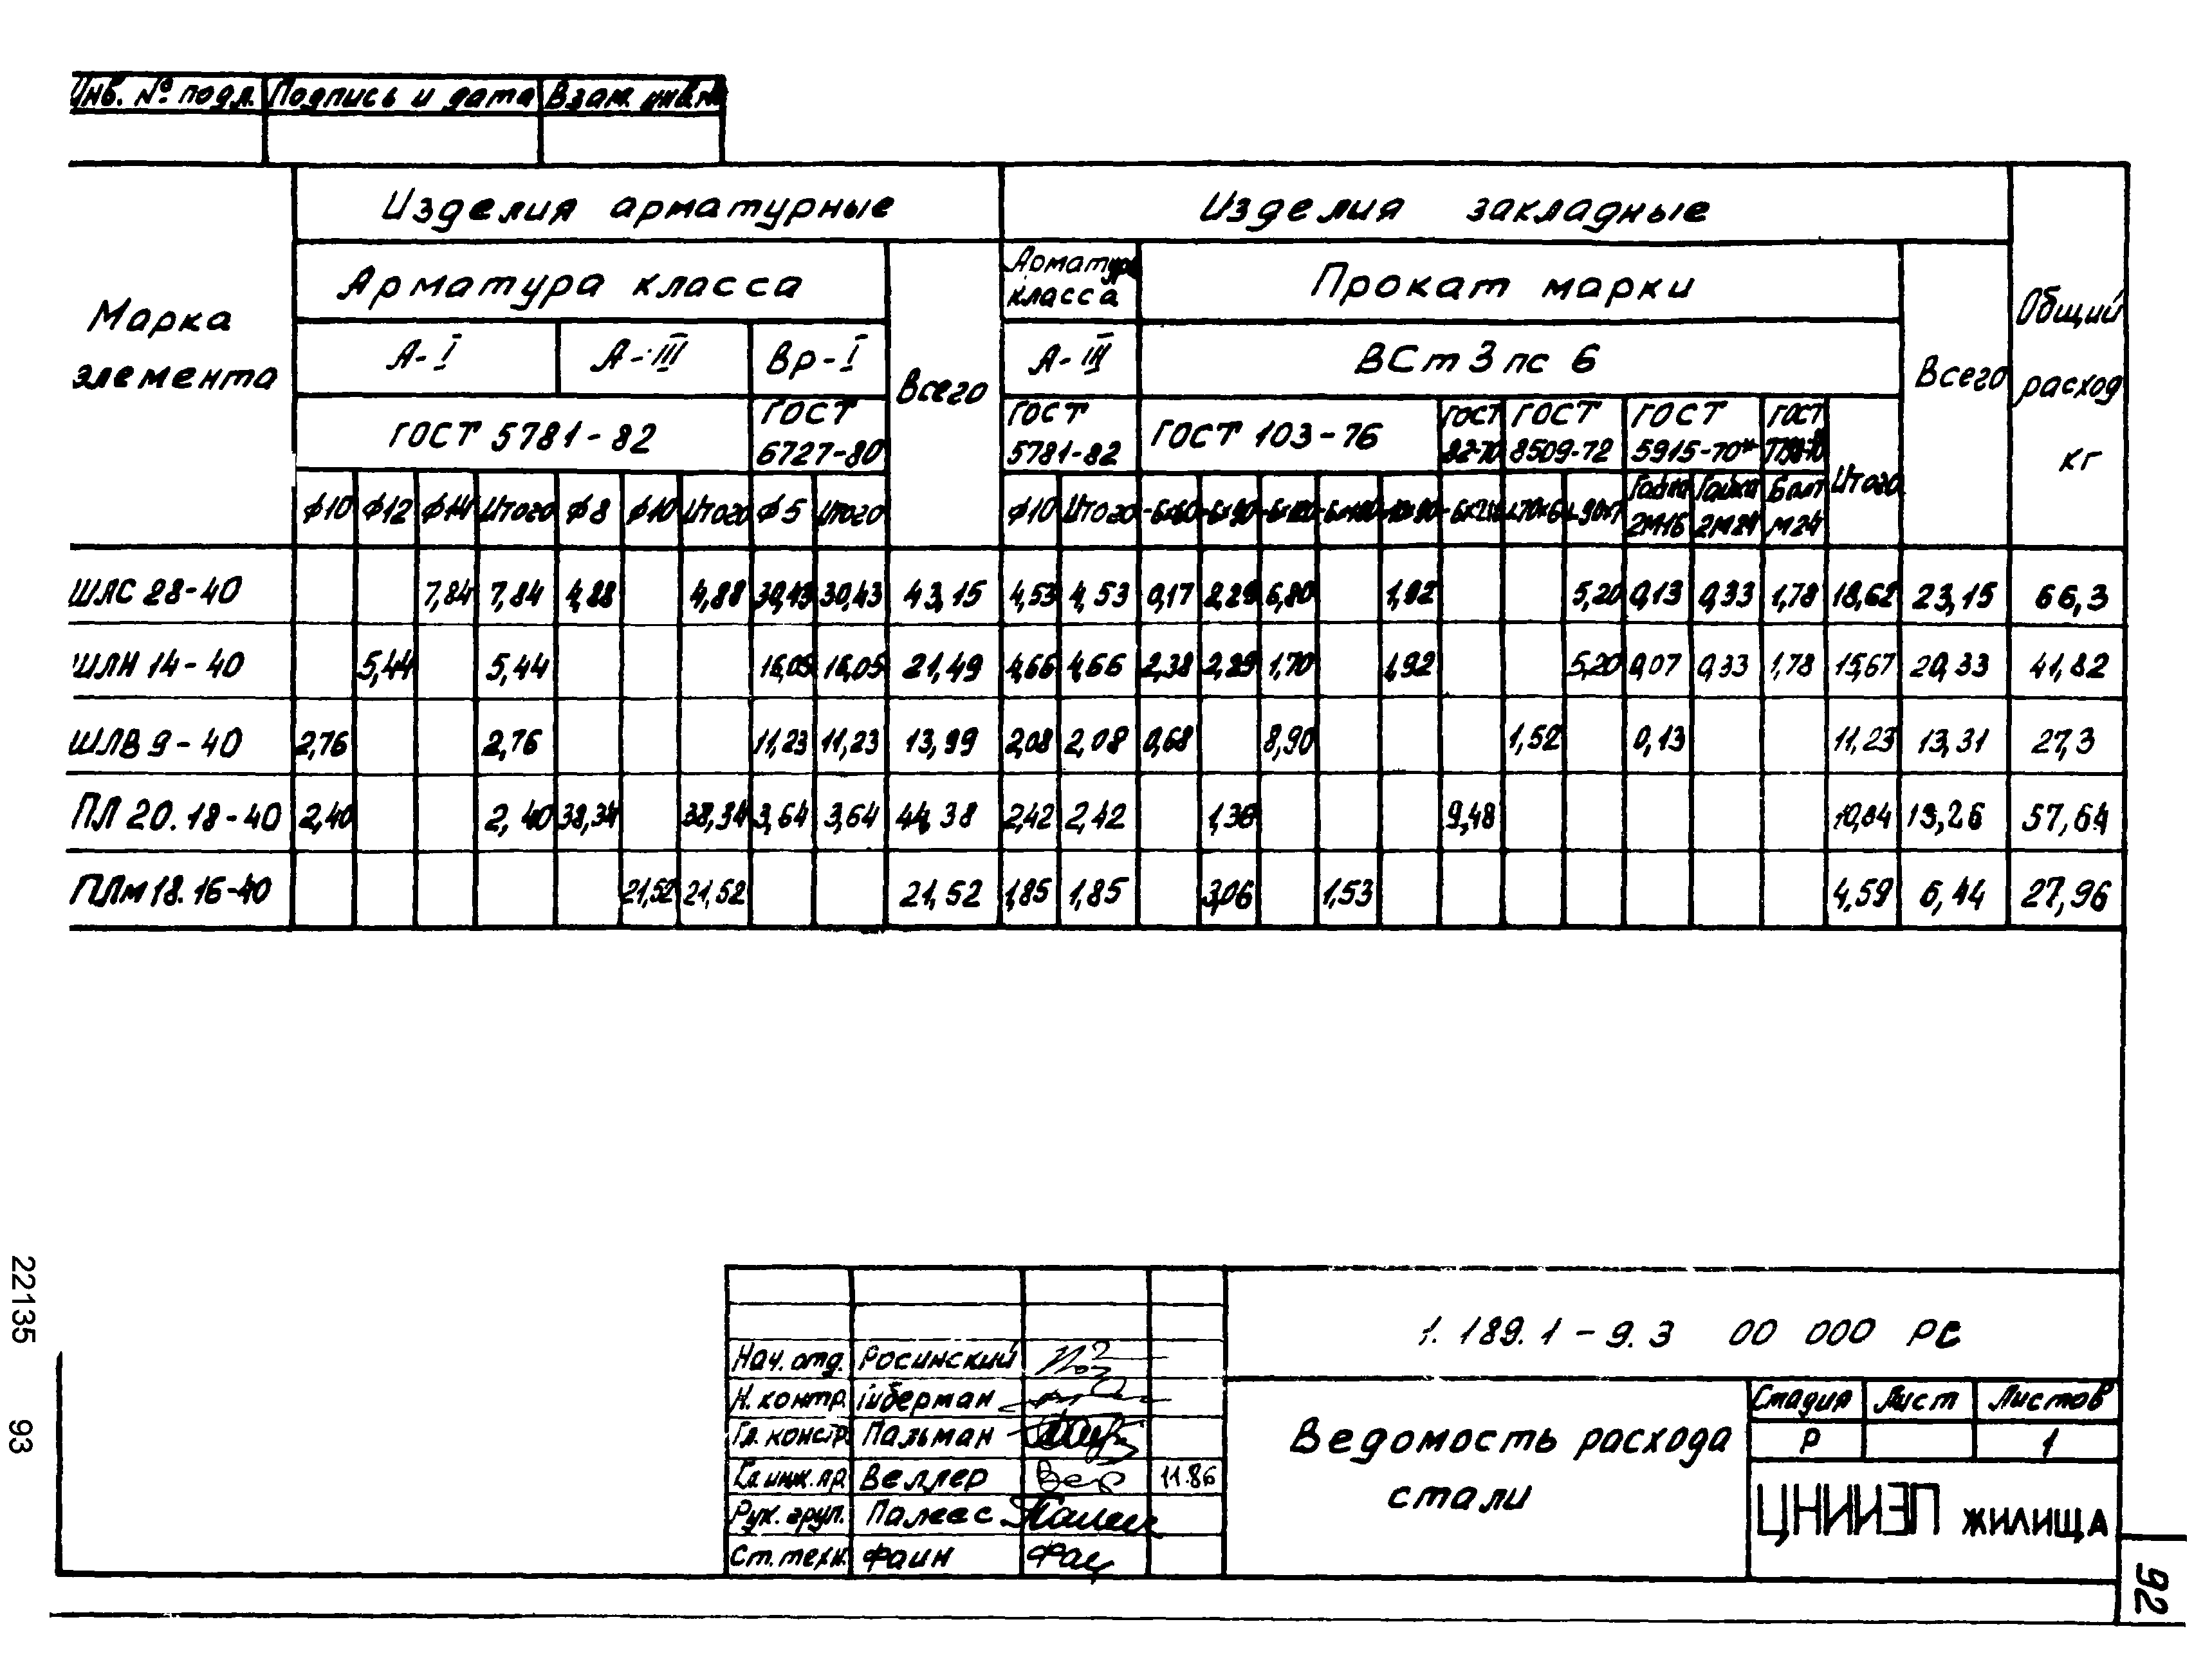 Инв. № подл. Подпись и дата Взам. инв. №
Изделия арматурные Изделия закладные
Марка элемента
Арматура класса
Всего
Арматура класса
Прокат марки
Всего
Общий расход кг
А-I А-III Вр-I А-III ВСт3пс6
ГОСТ 5781-82 ГОСТ 6727-80 ГОСТ 5781-82 ГОСТ 103-76 ГОСТ 82-70 ГОСТ 8509-72 ГОСТ 5915-70* ГОСТ
Итого
ф10 ф12 ф14 Итого ф8 ф10 Итого ф5 Итого ф10 Итого -6х60 -6х90 Гайка 2М16 Гайка 2М24 Болт М24
ШЛС 28-40 7,84 7,84 4,88 4,88 30,43 30,43 43,15 4,53 4,53 0,17 2,29 6,80 1,92 5,20 0,13 0,33 1,78 18,62 23,15 66,3
ШЛН 14-40 5,44 5,44 16,05 16,05 21,49 4,66 4,66 2,38 2,29 1,70 1,92 5,20 0,07 0,33 1,78 15,67 20,33 41,82
ШЛВ 9-40 2,76 2,76 11,23 11,23 13,99 2,08 2,08 0,68 8,90 1,52 0,13 11,23 13,31 27,3
ПЛ 20.18-40 2,40 2,40 38,34 38,34 3,64 3,64 44,38 2,42 2,42 1,36 9,48 10,84 13,26 57,64
ПЛм 18.16-40 21,52 21,52 21,52 1,85 1,85 3,06 1,53 4,59 6,44 27,96
1.189.1-9.3 00 000 РС
Нач. отд. Росинский
Н. контр. Губерман
Гл. констр. Пальман
Гл. инж. пр. Веллер 11.86
Рук. груп. Палеес
Ст. техн. Фаин
Ведомость расхода
стали
Стадия Лист Листов
Р 1
ЦНИИЭП жилища
22135 93
92